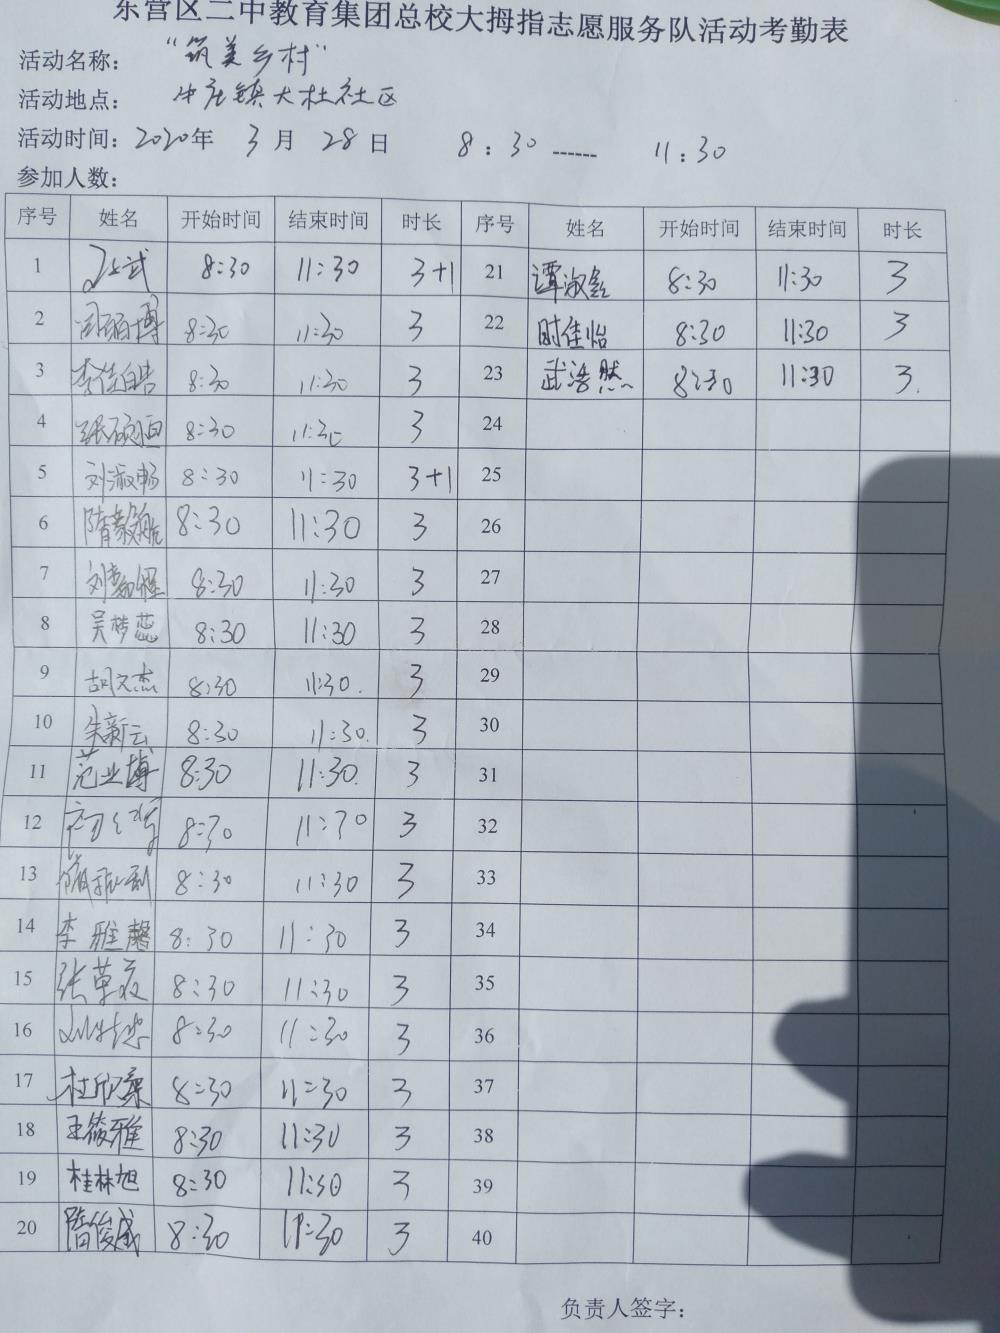 东营区二中教育集团总校大拇指志愿服务队活动考勤表
活动名称： “筑美乡村”
活动地点： 牛庄镇大杜社区
活动时间：2020年 3月 28日 8:30 ------ 11:30
参加人数：
序号 姓名 开始时间 结束时间 时长 序号 姓名 开始时间 结束时间 时长
1 8:30 11:30 3+1 21 谭淑鑫 8:30 11:30 3
2 博 8:30 11:30 3 22 时佳怡 8:30 11:30 3
3 李佳皓 8:30 11:30 3 23 武浩然 8:30 11:30 3.
4 张硕恒 8:30 11:30 3 24
5 刘淑畅 8:30 11:30 3+1 25
6 隋毅航 8:30 11:30 3 26
7 刘 8:30 11:30 3 27
8 吴梦蕊 8:30 11:30 3 28
9 胡文杰 8:30 11:30. 3 29
10 朱新云 8:30 11:30. 3 30
11 范业博 8:30 11:30. 3 31
12 8:30 11:30 3 32
13 8:30 11:30 3 33
14 李雅馨 8:30 11:30 3 34
15 张 8:30 11:30 3 35
16 8:30 11:30 3 36
17 杜欣桑 8:30 11:30 3 37
18 王筱雅 8:30 11:30 3 38
19 桂林旭 8:30 11:30 3 39
20 隋俊威 8:30 11:30 3 40
负责人签字：